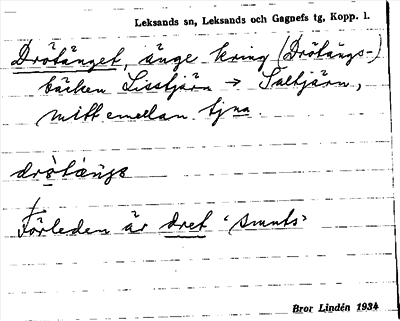 Leksands sn, Leksands och Gagnefs tg, Kopp. l.
Drötänget, änge kring (Drötängs-)
bäcken Lisstjärn → Saltjärn,
mitt emellan tjna.
drötängs
Förleden är dret 'smuts'
Bror Lindén 1934